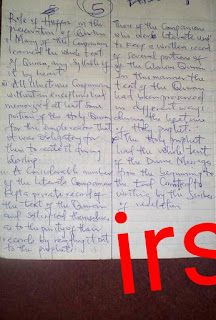 5
Role of Huffaz in the
preservation of Quran
i. Many of the Companions
learned the whole text
of Quran, every syllable of
it by heart.
ii. All illustrious Companions
without exception had
memorized at least some
portion of the Holy Quran
for the simple reason that
it was obligatory for
them to recite it during
worship
iii. A considerable number
of the literate Companions
kept a private record of
the text of the Quran
and satisfied themselves
as to the purity of their
records by reading it out
to the prophet
Those of the Companions
who were literate used
to keep a written record
of several portions of
the Quran
In this manner the
text of the Quran
had been preserved
in
during the life time
of Holy prophet.
The Holy prophet
had the whole text
of the Divine Message
from the beginning to
the end Committed to
writing by the Scribes
of revelation
irs